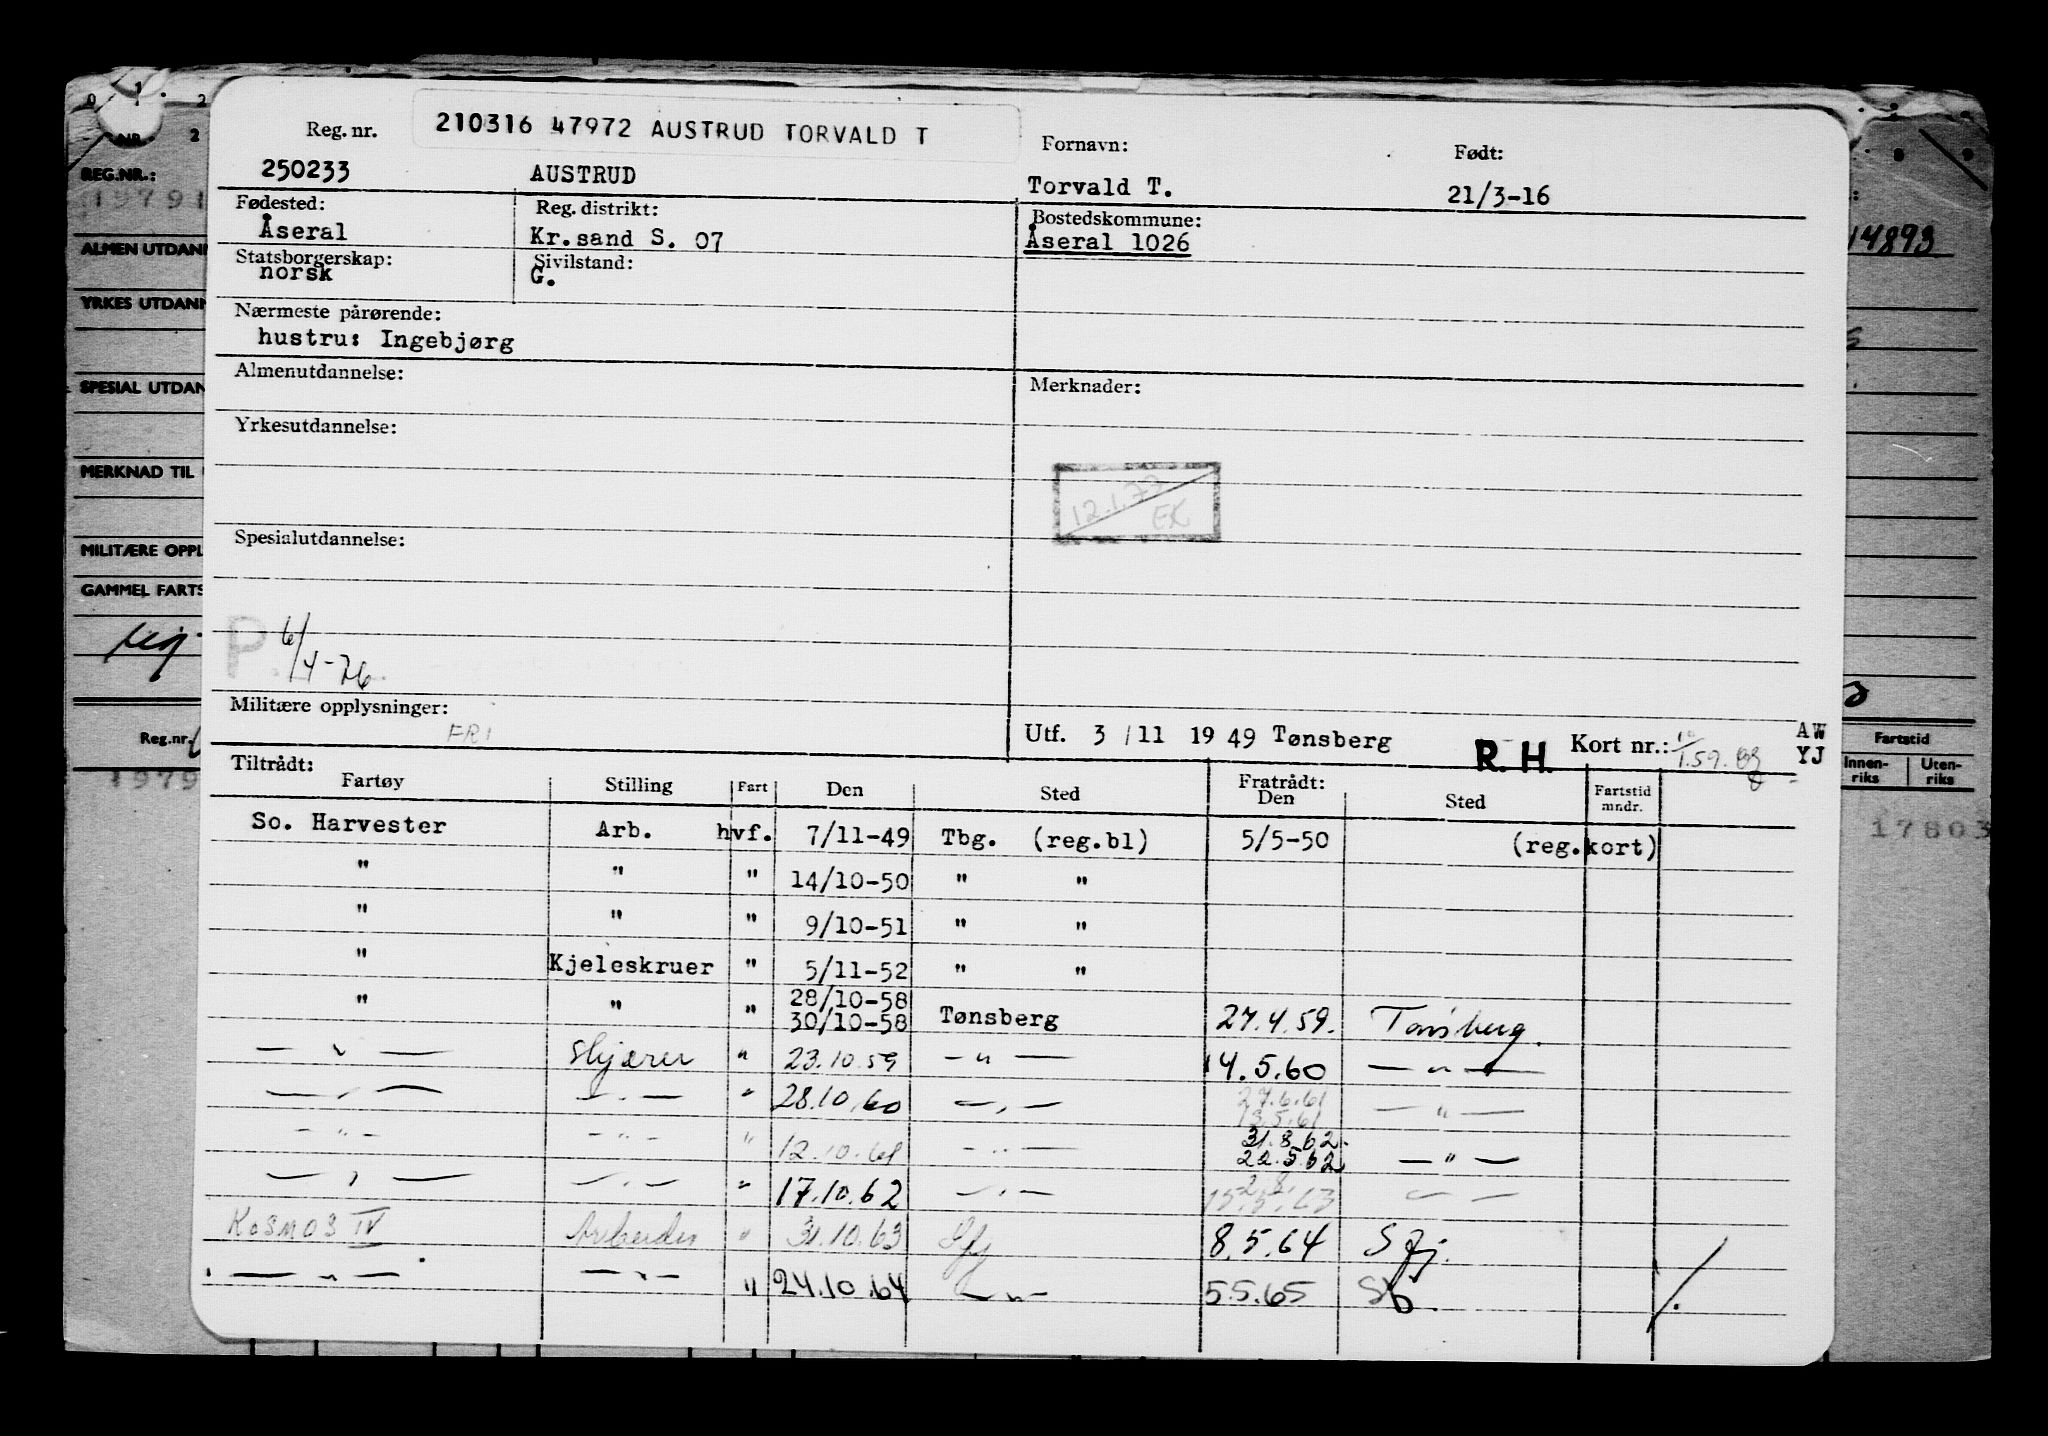 210316 47972 AUSTRUD TORVALD T
Reg. nr. Fornavn: Født:
250233 AUSTRUD Torvald T. 21/3-16
Fødested: Reg. distrikt: Bostedskommune:
Åseral Kr.sand S. 07 Åseral 1026
Statsborgerskap: Sivilstand:
norsk G.
Nærmeste pårørende:
hustru: Ingebjørg
Almenutdannelse: Merknader:
Yrkesutdannelse:
12.1.72
EK
Spesialutdannelse:
P. 6/4-76
Militære opplysninger:
FRI
Utf. 3/11 1949 Tønsberg R. H. Kort nr.: AW
YJ
Tiltrådt: Fratrådt:
Fartøy Stilling Fart Den Sted Den Sted Fartstid mndr.
So. Harvester Arb. hvf. 7/11-49 Tbg. (reg.bl) 5/5-50 (reg.kort)
" " " 14/10-50 " "
" " " 9/10-51 " "
" Kjeleskruer " 5/11-52 " "
" " " 28/10-58
30/10-58 Tønsberg 27.4.59. Tønsberg.
— " — Skjærer " 23.10.59 — " — 14.5.60 — " —
— " — — " — " 28.10.60 — " — 27.6.61
13.5.61 — " —
— " — — " — " 12.10.61 — " — 31.8.62.
22.5.62 — " —
— " — — " — " 17.10.62 — " — — " —
KOSMOS IV Arbeider " 31.10.63 Sfj 8.5.64 Sfj.
— " — — " — " 24.10.64 — " — 5.5.65
REG.NR.:
1979
ALMEN UTDAN
YRKES UTDAN
SPESIAL UTDAN
MERKNAD TIL
MILITÆRE OPPL
GAMMEL FARTS
Reg.nr.
1979
14893
Fartstid
Innen-riks Uten-riks
17803